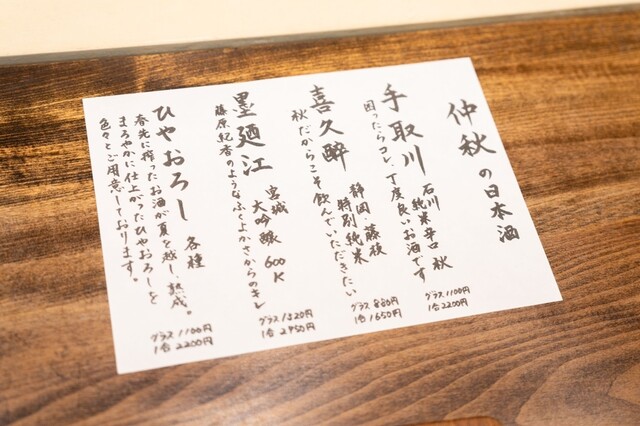 仲秋の日本酒
手取川 石川 純米辛口 秋
困ったらコレ、丁度良いお酒です
グラス 1100円
1合 2200円
喜久酔 静岡・藤枝 特別純米
秋だからこそ飲んでいただきたい
グラス 880円
1合 1650円
墨廼江 宮城 大吟醸 600K
藤原紀香のようなふくよかさからのキレ
グラス 1320円
1合 2950円
ひやおろし 各種
春先に搾ったお酒が夏を越し、熟成。
まろやかに仕上がったひやおろしを
色々とご用意しております。
グラス 1100円
1合 2200円